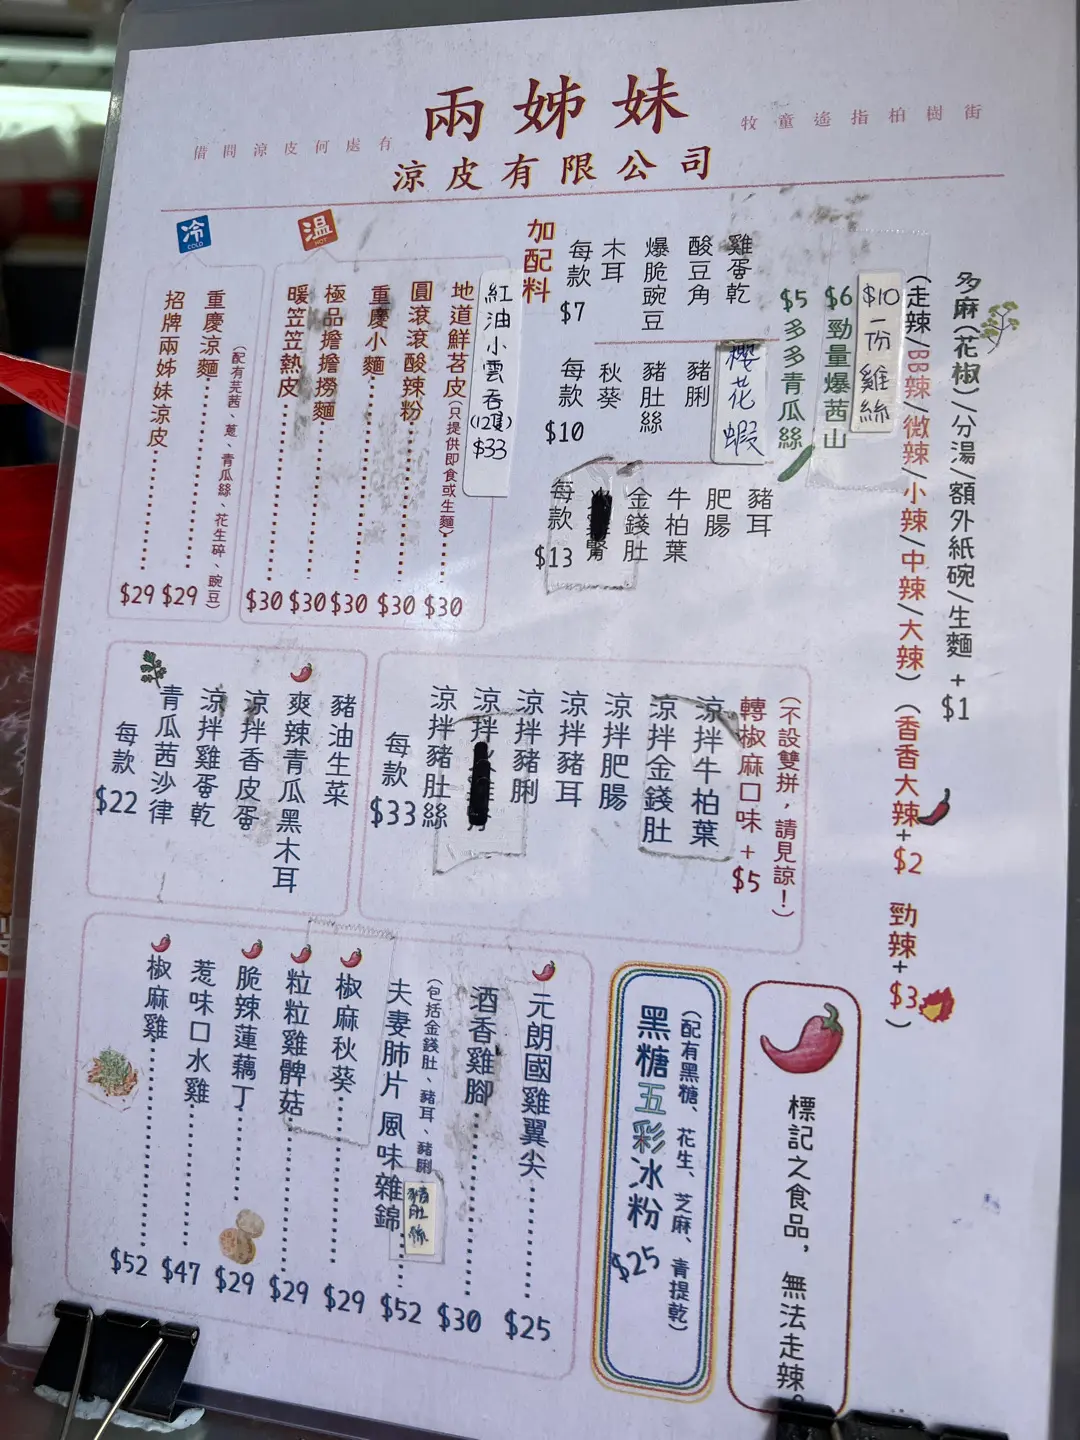 兩姊妹
借問涼皮何處有
牧童遙指柏樹街
涼皮有限公司
冷
COLD
招牌兩姊妹涼皮 $29
重慶涼麵 $29
(配有芫茜、蔥、青瓜絲、花生碎、豌豆)
温
HOT
暖笠笠熱皮 $30
極品擔擔撈麵 $30
重慶小麵 $30
圓滾滾酸辣粉 $30
地道鮮苕皮 (只提供即食或生麵) $30
紅油小雲吞(12隻) $33
加配料
每款 $7
木耳
爆脆豌豆
酸豆角
雞蛋乾
每款 $10
秋葵
豬肚絲
豬脷
櫻花蝦
每款 $13
金錢肚
牛柏葉
肥腸
豬耳
$5 多多青瓜絲
$6 勁量爆茜山
$10 一份雞絲
(走辣/BB辣/微辣/小辣/中辣/大辣) (香香大辣+$2 勁辣+$3)
多麻(花椒)/分湯/額外紙碗/生麵+$1
每款 $22
青瓜茜沙律
涼拌雞蛋乾
涼拌香皮蛋
爽辣青瓜黑木耳
豬油生菜
每款 $33
涼拌豬肚絲
涼拌
涼拌豬脷
涼拌豬耳
涼拌肥腸
涼拌金錢肚
涼拌牛柏葉
轉椒麻口味+$5
(不設雙拼,請見諒!)
椒麻雞 $52
惹味口水雞 $47
脆辣蓮藕丁 $29
粒粒雞髀菇 $29
椒麻秋葵 $29
夫妻肺片 風味雜錦 $52
(包括金錢肚、豬耳、豬脷
豬肚絲
酒香雞腳 $30
元朗國雞翼尖 $25
黑糖五彩冰粉 $25
(配有黑糖、花生、芝麻、青提乾)
標記之食品,無法走辣。